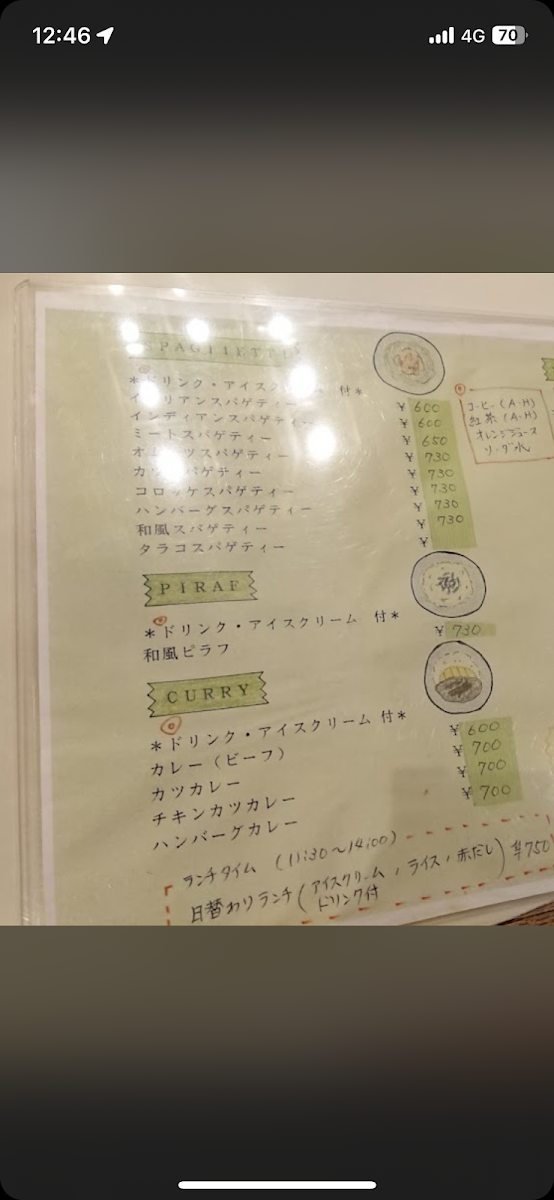 12:46
4G 70
SPAGHETTI
*ドリンク・アイスク 付*
イタリアンスパゲティー ¥600
インディアンスパゲティー ¥600
ミートスパゲティー ¥650
スパゲティー ¥730
カツスパゲティー ¥730
コロッケスパゲティー ¥730
ハンバーグスパゲティー ¥730
和風スパゲティー ¥730
タラコスパゲティー ¥
コーヒー(A・H)
紅茶(A・H)
オレンジジュース
ソーダ水
PIRAF
*ドリンク・アイスクリーム 付*
和風ピラフ ¥730
CURRY
*ドリンク・アイスクリーム 付*
カレー(ビーフ) ¥600
カツカレー ¥700
チキンカツカレー ¥700
ハンバーグカレー ¥700
ランチタイム (11:30~14:00)
日替わりランチ(アイスクリーム、ライス、赤だし) ¥750
ドリンク付